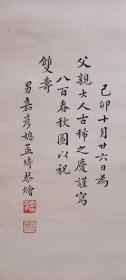 己卯十月廿六日為
父親大人古稀之慶謹寫
八百春秋圖以祝
雙壽
男嘉彥媳孟琦恭繪